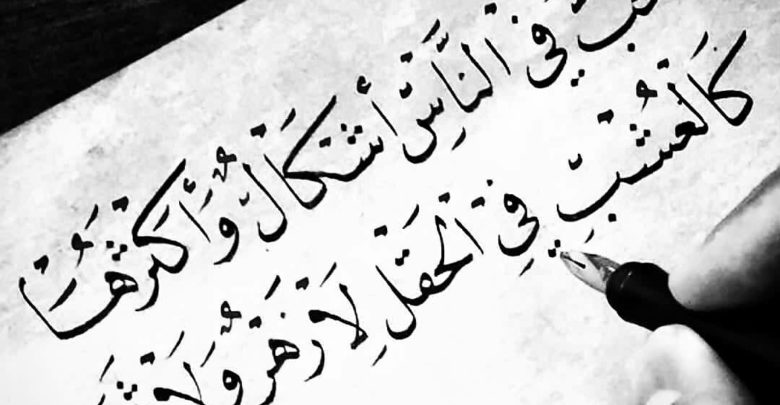 فِي النَّاسِ أَشْكَالٌ وَأَكْثَرُهَا
كَالْعُشْبِ فِي الْحَقْلِ لَا زَهْرٌ وَلَا